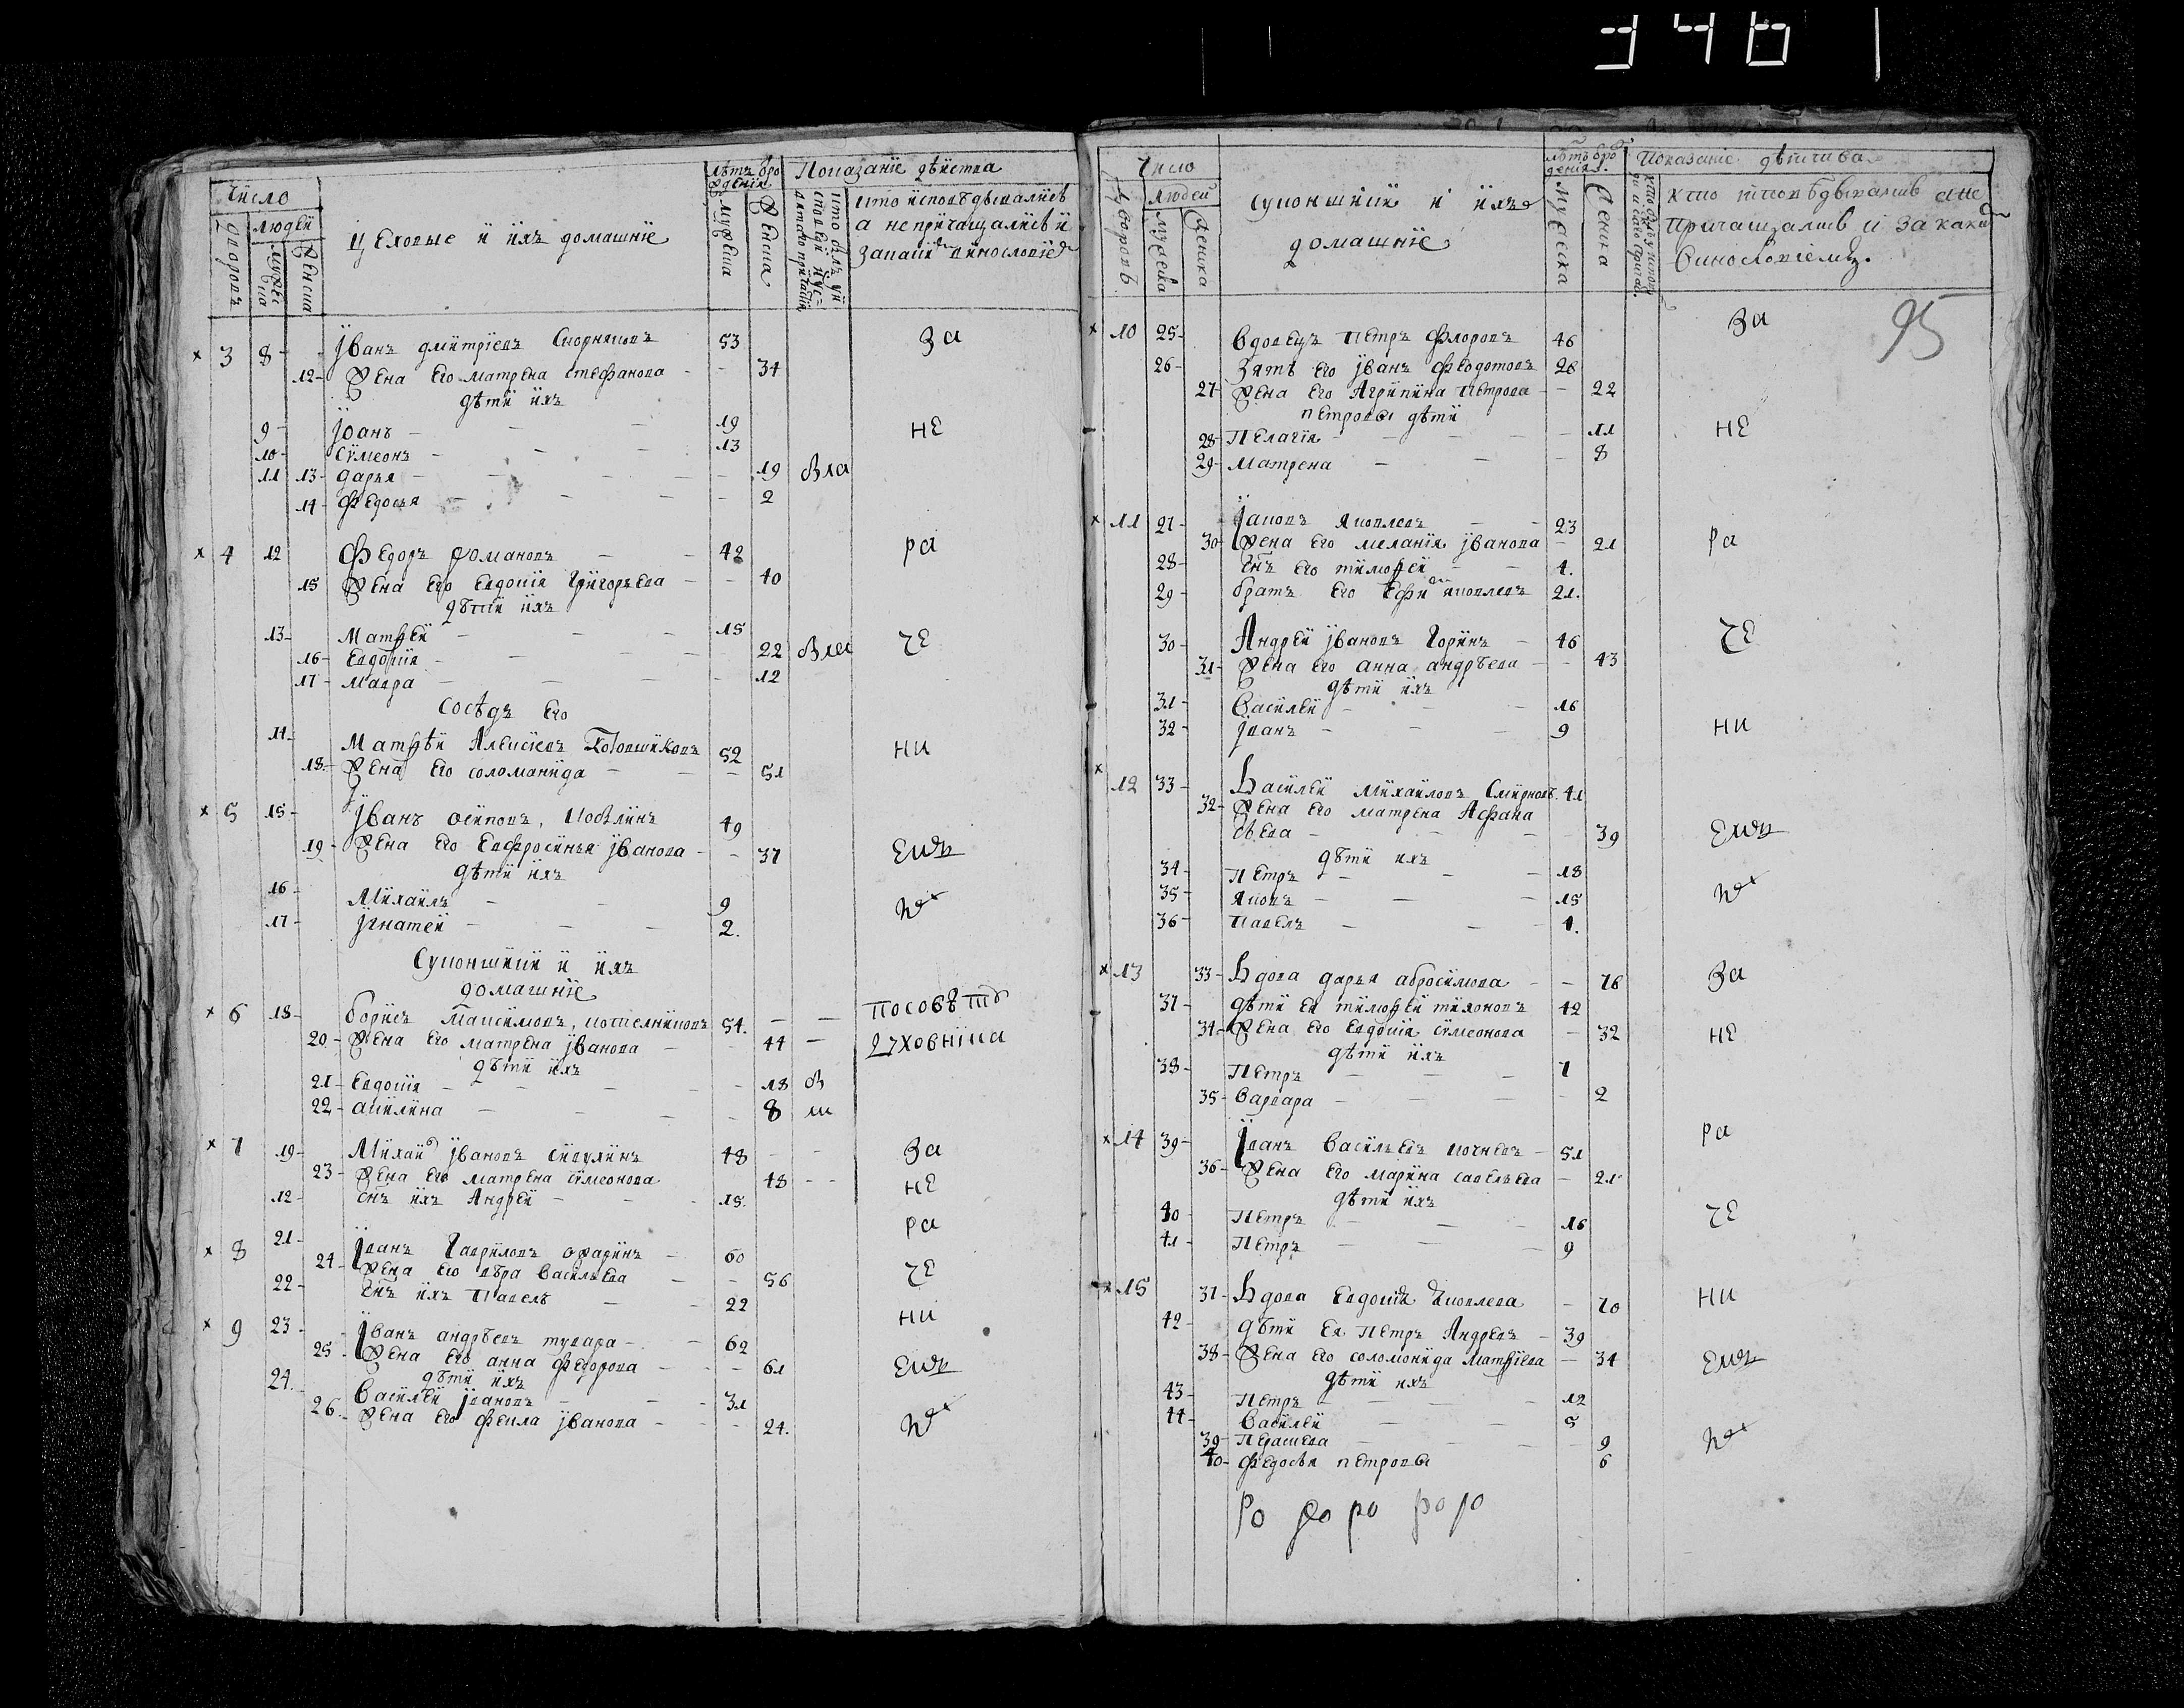 346
Число
Лѣтъ Ѿро
жденія
Показанїе дѣйства
дворовъ
людей
мужеска
женска
Цеховые и ихъ домашнїе
мужеска
женска
кто исповѣдывались
а не причащались и
за каким винословїем
× 3 8 Ӏванъ Дмитрїевъ 53 За
12 Жена его Матрена Стефанова 34
дѣти ихъ
9 Ӏоанъ 19 НЕ
10 Сѵмеонъ 13
11 13 Дарья 19 была
14 Федосья 2
× 4 12 Федоръ Романовъ 42 ра
15 Жена его Евдокїя Григорьева 40
дѣти ихъ
13 Матѳей 15
16 Евдокїя 22 была че
17 Мавра 12
Сосѣдъ его
14 Матѳѣй Алексѣевъ 52 ни
18 Жена его Соломанида 51
× 5 15 Ӏванъ Осиповъ 49
19 Жена его Евфросинья Ӏванова 37 Емъ
дѣти ихъ
16 Михаилъ 9
17 Ӏгнатей 2.
Суконщики и ихъ
домашнїе
× 6 18 Борисъ Максимовъ 54. по совѣту
20 Жена его Матрена Ӏванова 44 духовника
дѣти ихъ
21 Евдокїя 18
22 Акилина 8
× 7 19 Михайл Ӏвановъ 48 За
23 Жена его Матрена Сѵмеонова 48 НЕ
12 Снъ ихъ Андрей 15.
× 8 21 Ӏванъ Гавриловъ 60 ра
24 Жена его Вѣра Васильева 56 че
22 Снъ ихъ Павелъ 22
× 9 23 Ӏванъ Андрѣевъ 62 ни
25 Жена его Анна Федорова 61 Емъ
дѣти ихъ
24. Василей Ӏвановъ 31
26 Жена его Фекла Ӏванова 24.
Число
дворовъ
людей
мужеска
женска
Суконщики и ихъ
домашнїе
лѣтъ Ѿро
жденія.
мужеска
женска
Показанїе дѣйства
кто исповѣдывались а не
причащались и за каким
винословїемъ.
95
× 10 25 Вдовецъ Петръ Флоровъ 46 За
26 Зять его Ӏванъ Феодотовъ 26
27 Жена его Агрипина Петрова 22
Петровы дѣти
28 Пелагїя 11 НЕ
29 Матрена 8
× 11 27 Ӏаковъ Яковлевъ 23
30 Жена его Меланїя Ӏванова 21 ра
28 Снъ его Тимоѳей 1.
29 Братъ его Ефим Яковлевъ 21.
30 Андрей Ӏвановъ Горинъ 46 че
31 Жена его Анна Андрѣева 43
дѣти ихъ
31 Василей 16
32 Ӏванъ 9 ни
× 12 33 Василей Михайловъ Смирновъ 41
32 Жена его Матрена Афана
сьева 39 Емъ
дѣти ихъ
34 Петръ 18
35 Яковъ 15
36 Павелъ 1.
× 13 33 Вдова Дарья Абросимова 76 За
37 дѣти ея Тимоѳей Тихоновъ 42
34 Жена его Евдокїя Сѵмеонова 32 НЕ
дѣти ихъ
38 Петръ 7
35 Варвара 2
× 14 39 Ӏванъ Васильевъ 51 ра
36 Жена его Марина Савельева 21
дѣти ихъ
40 Петръ 16 че
41 Петръ 9
× 15 37 Вдова Евдокїя Яковлева 70 ни
42 дѣти ея Петръ Андреевъ 39
38 Жена его Соломонида Матѳїева 34 Емъ
дѣти ихъ
43 Петръ 12
44 Василей 5
39 Параскева 9
40 Федосья Петровы 6
Ро ро ро ро ро